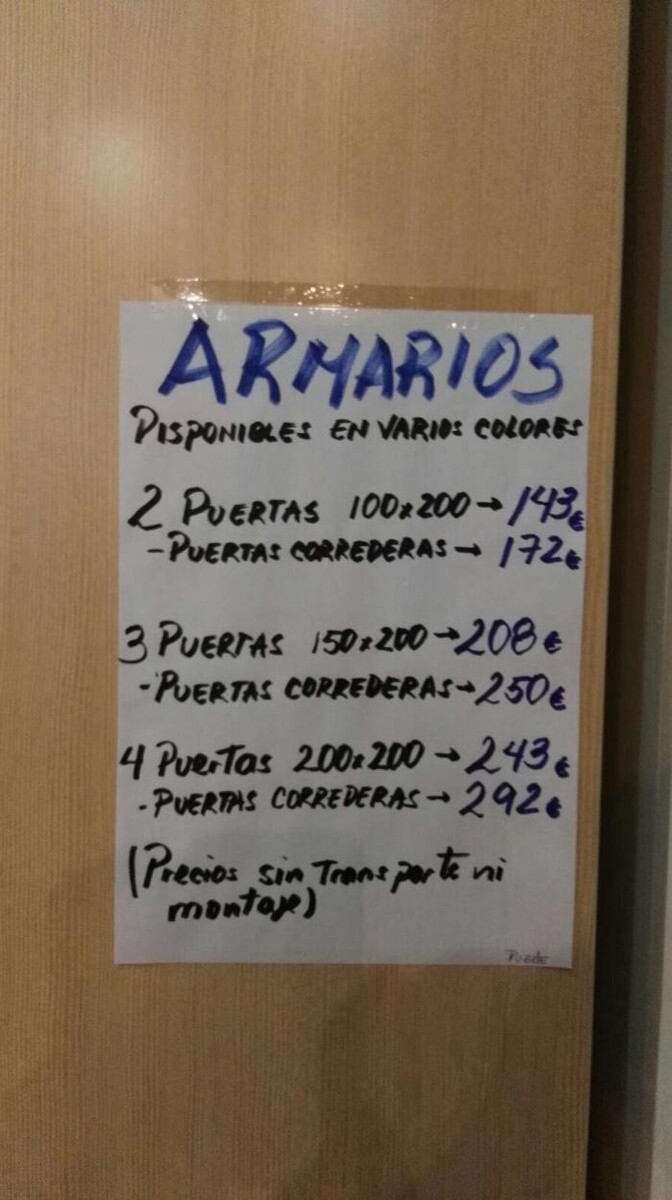 ARMARIOS
DISPONIBLES EN VARIOS COLORES
2 PUERTAS 100x200→143€
-PUERTAS CORREDERAS→ 172€
3 PUERTAS 150x200→208€
-PUERTAS CORREDERAS→250€
4 PUERTAS 200x200→243€
-PUERTAS CORREDERAS→292€
(Precios sin Transporte ni
montaje)